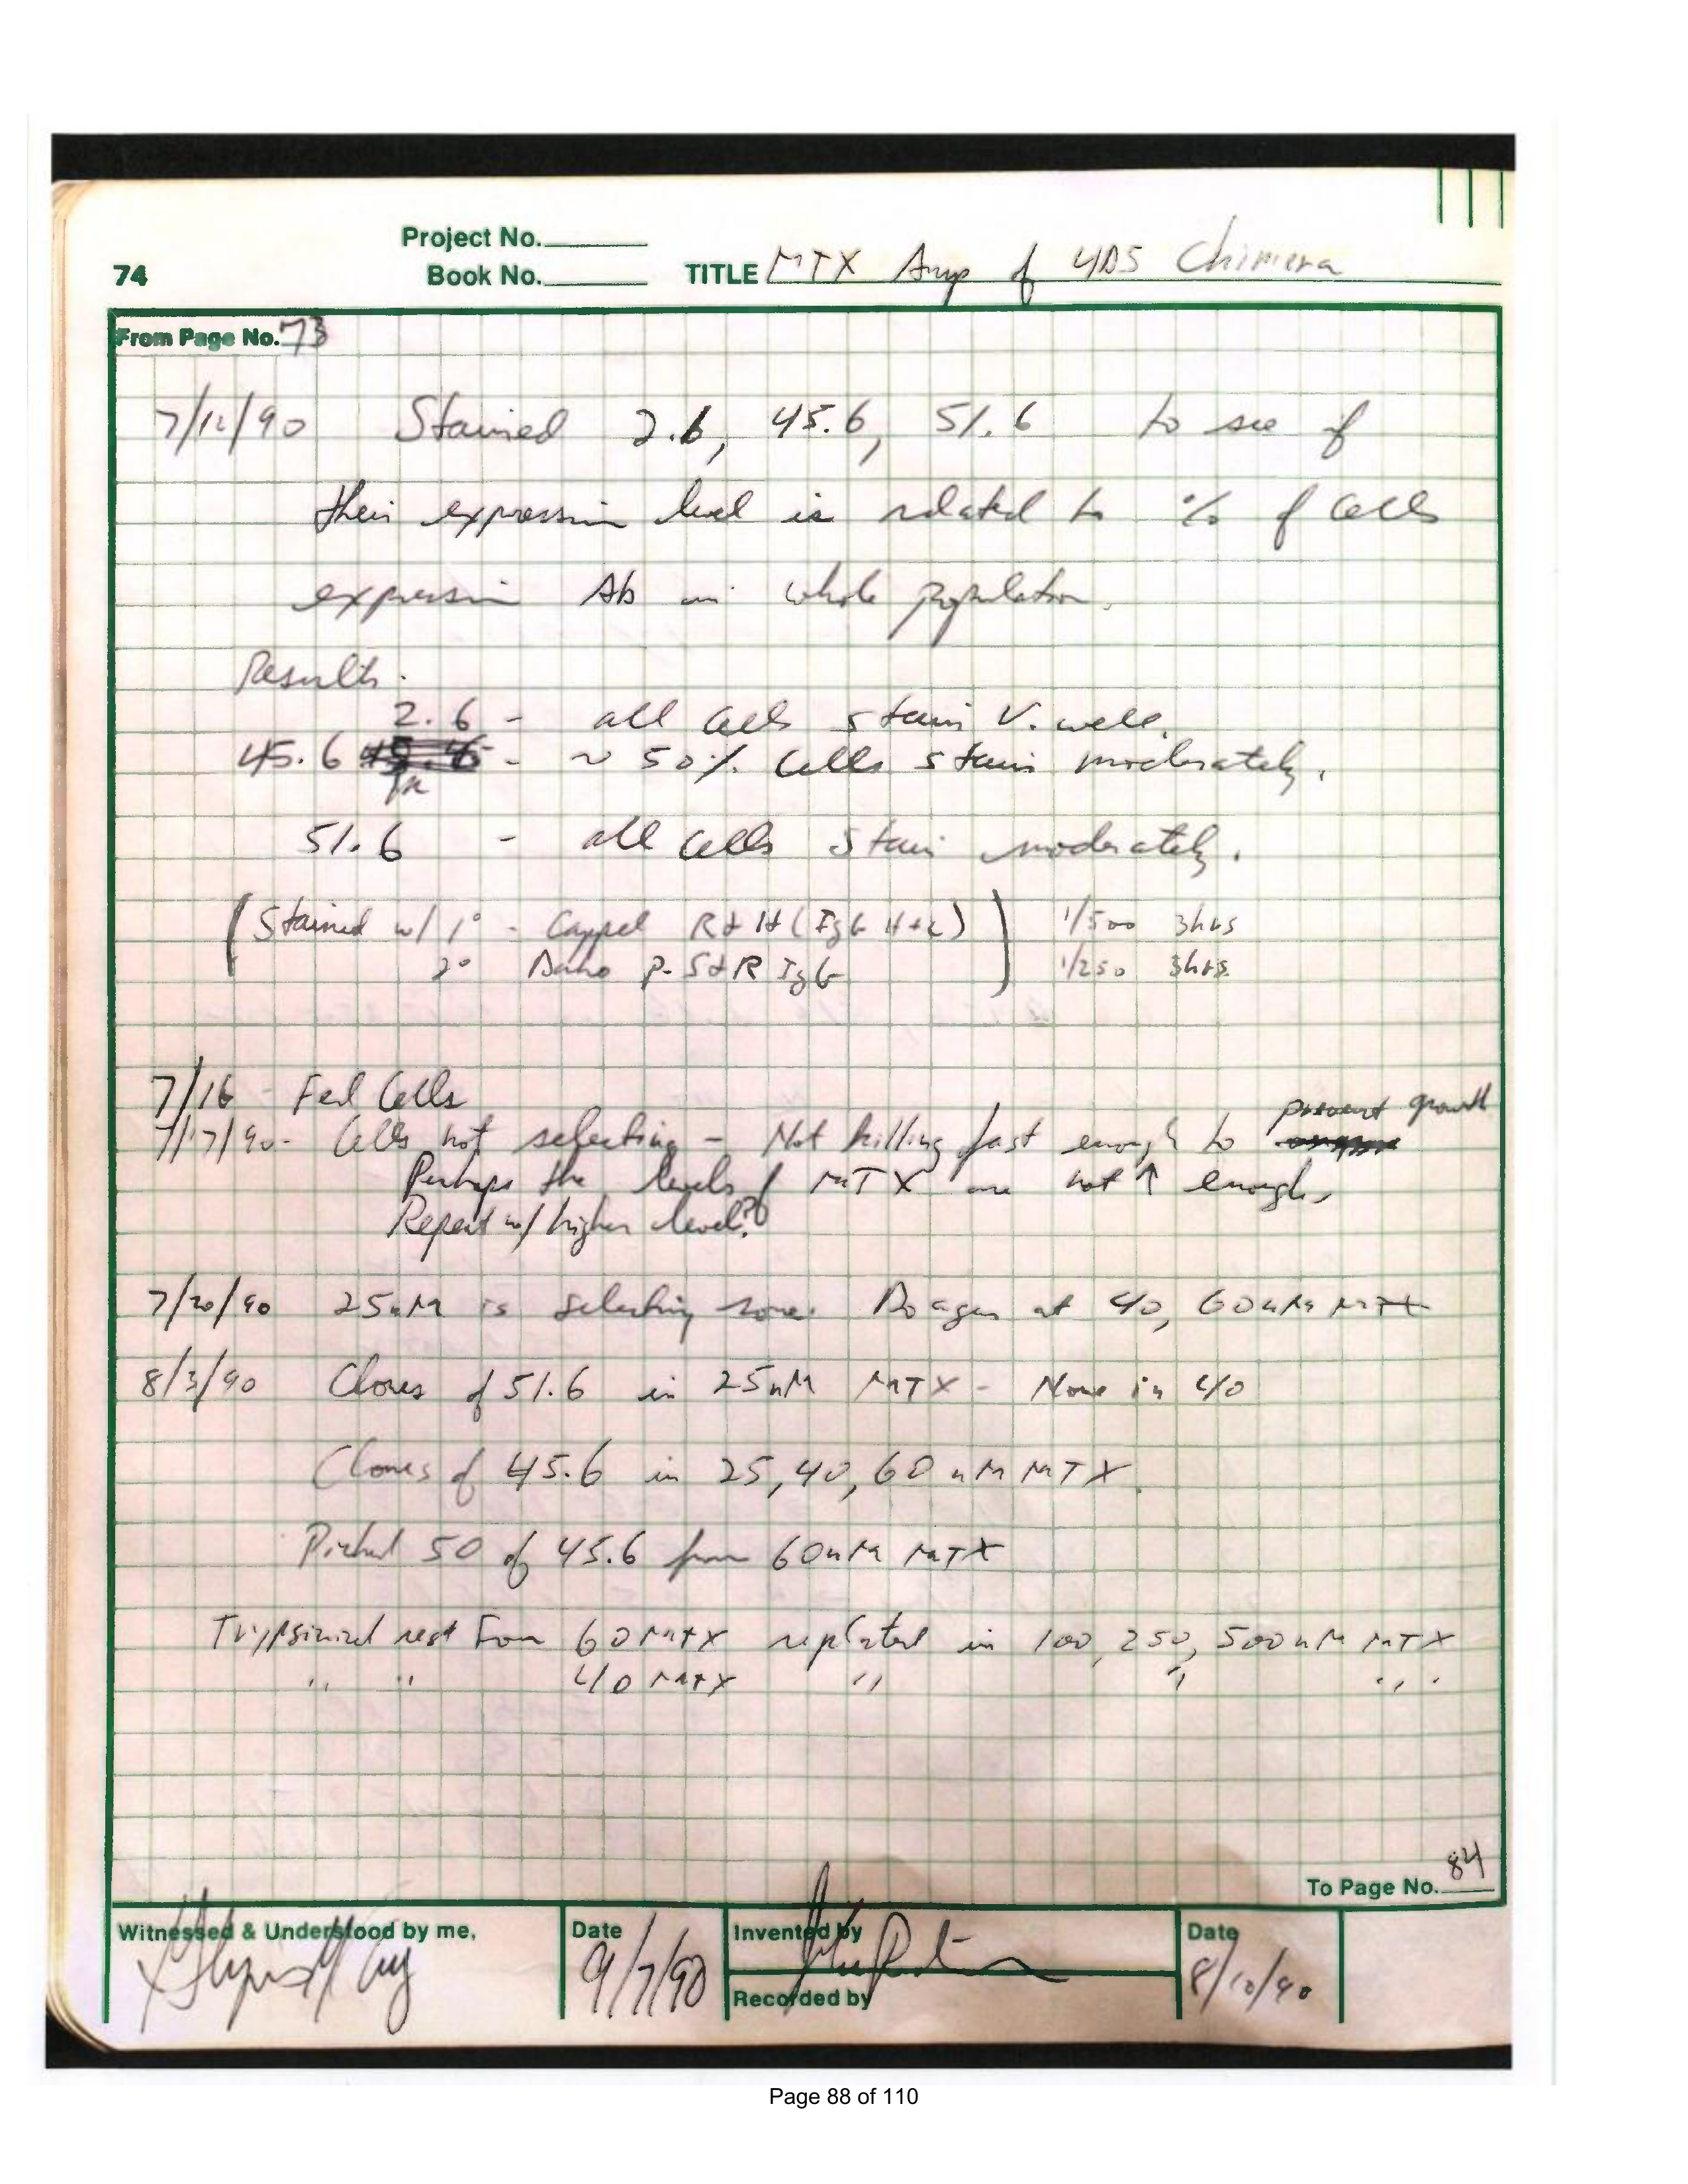 Project No.
74 Book No. TITLE MTX Amp of 4D5 Chimera
From Page No. 73
7/12/90 Stained 2.6, 45.6, 51.6 to see if
their expression level is related to % of cells
expressin Ab in whole population.
Results.
2.6 - all cells stain V. well.
45.6 - ~ 50% Cells stain moderately.
51.6 - all cells stain moderately.
(Stained w/ 1° - Cappel RαH (IgG H+L)) 1/500 3hrs
2° Dako P-SαR IgG 1/250 3hrs.
7/16 - Fed Cells
prevent growth
7/17/90- Cells not selecting - Not killing fast enough to
Perhaps the levels of MTX are not ↑ enough,
Repeat w/ higher level?
7/20/90 25nM is selecting some. Do again at 40, 60nM MTX
8/3/90 Clones of 51.6 in 25nM MTX - None in 40
Clones of 45.6 in 25, 40, 60 nM MTX.
Picked 50 of 45.6 from 60nM MTX
Trypsinized rest From 60 MTX replated in 100, 250, 500 nM MTX
" " 40 MTX " " "
To Page No. 84
Witnessed & Understood by me, Date Invented by Date
9/7/90 8/10/90
Recorded by
Page 88 of 110